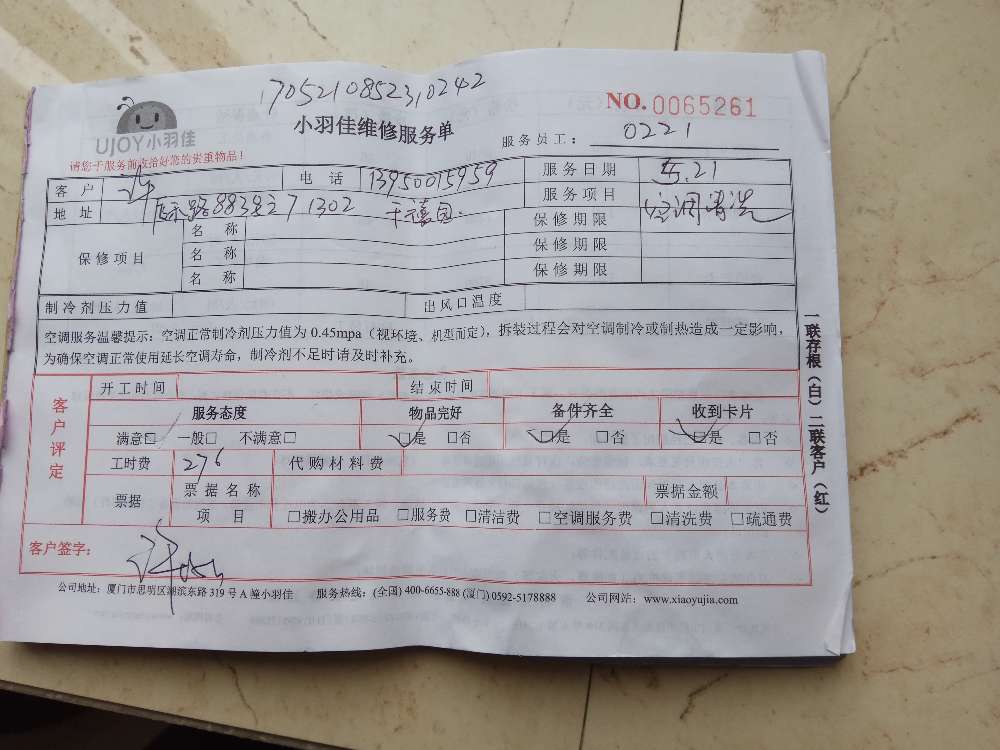 170521085231,0242
NO.0065261
UJOY小羽佳
小羽佳维修服务单
服务员工: 0221
请您于服务前收拾好您的贵重物品!
客户 许 电话 13950015959 服务日期 5.21
地址 路883号 71302 千禧园 服务项目 空调清洗
保修项目 名称 保修期限
名称 保修期限
名称 保修期限
制冷剂压力值 出风口温度
空调服务温馨提示:空调正常制冷剂压力值为 0.45mpa(视环境、机型而定),拆装过程会对空调制冷或制热造成一定影响,
为确保空调正常使用延长空调寿命,制冷剂不足时请及时补充。
客户评定
开工时间 结束时间
服务态度 物品完好 备件齐全 收到卡片
满意□ 一般□ 不满意□ □是 □否 □是 □否 □是 □否
工时费 276 代购材料费
票据 票据名称 票据金额
项目 □搬办公用品 □服务费 □清洁费 □空调服务费 □清洗费 □疏通费
客户签字:
公司地址:厦门市思明区湖滨东路 319 号 A 幢小羽佳 服务热线:(全国) 400-6655-888 (厦门) 0592-5178888 公司网站:www.xiaoyujia.com
一联存根(白)二联客户(红)